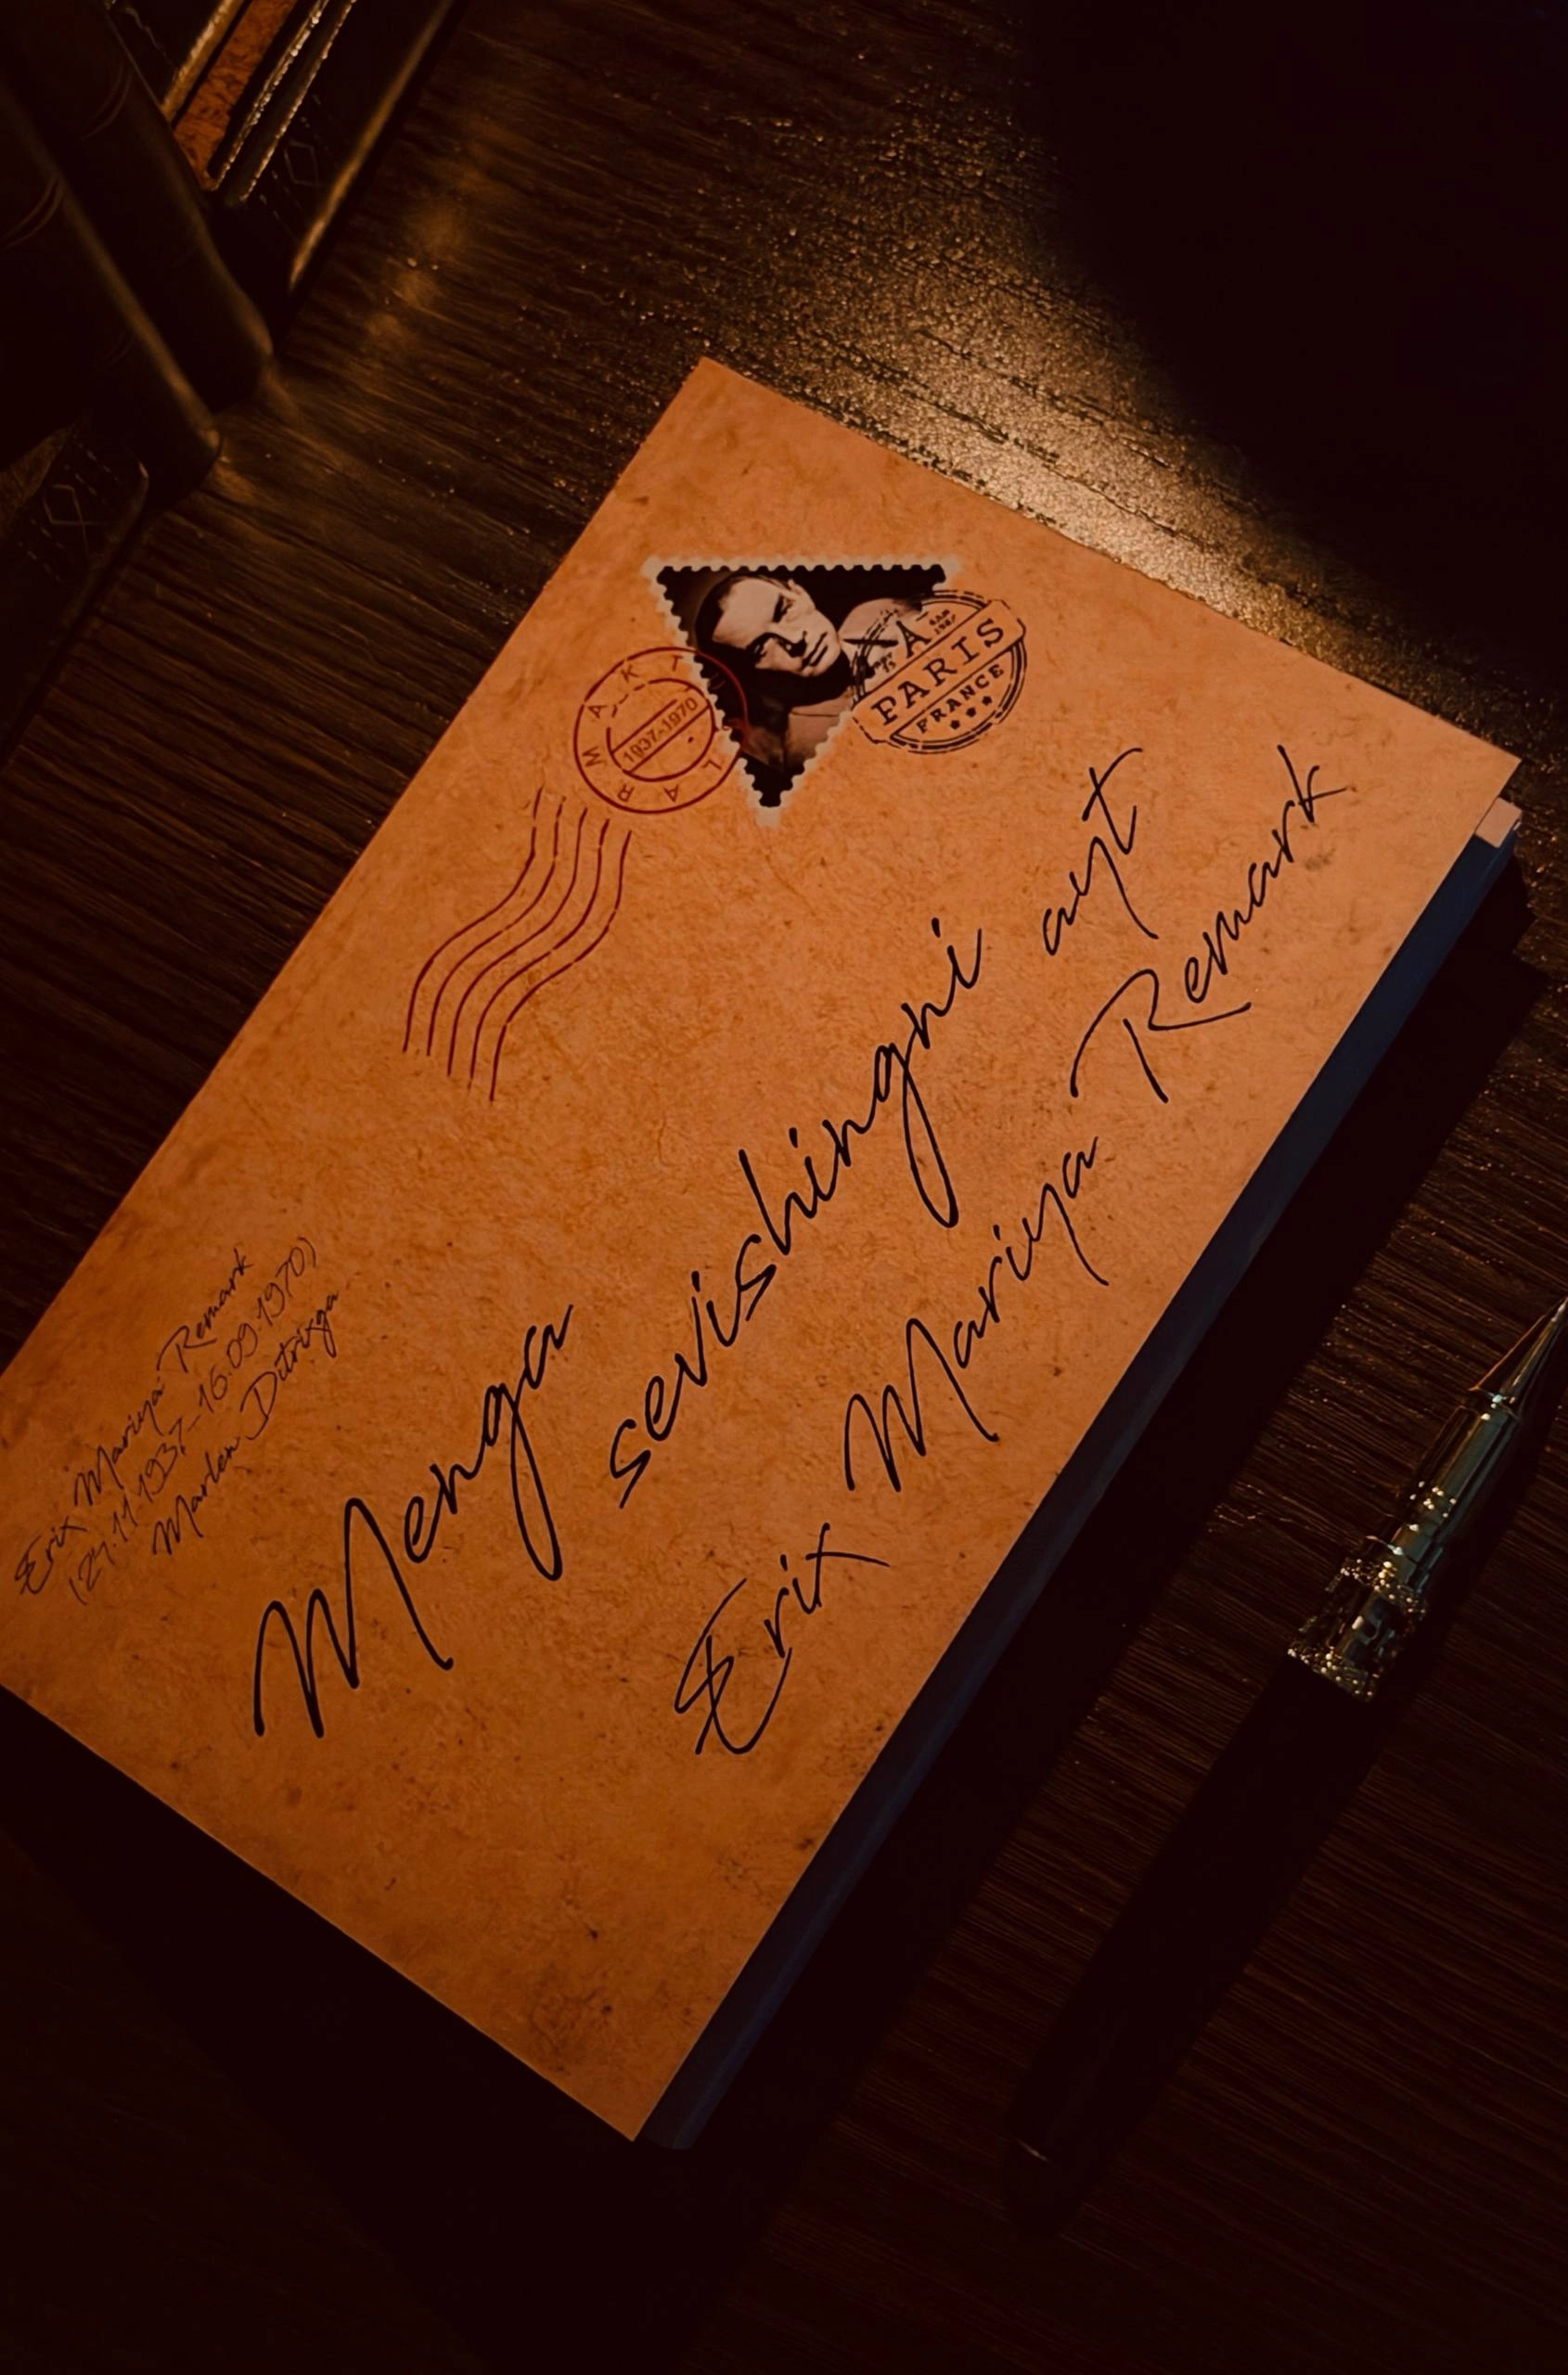 Erix Mariya Remark
(24.11.1937-16.09.1970)
Marlen Ditrixga
MAKTUBLAR
1937-1970
PARIS
FRANCE
Menga
sevishingni ayt
Erix Mariya Remark